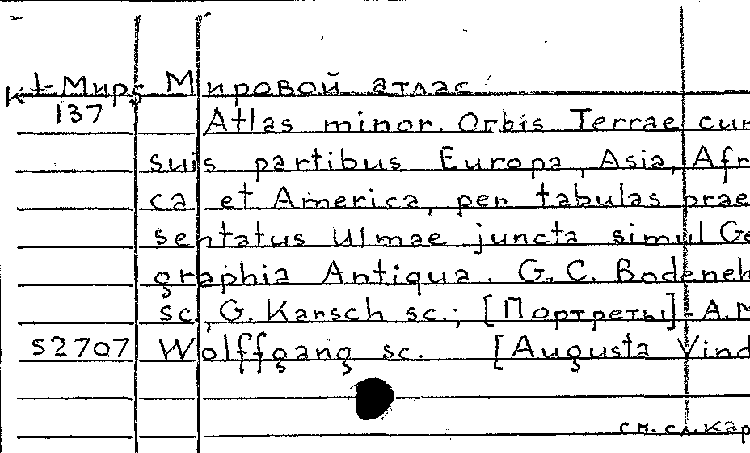 К 1-Мирs Мировой атлас.
137 Atlas minor. Orbis Terrae cum
suis partibus Europa, Asia, Afri
ca et America, per tabulas prae
sentatus Ulmae juncta simul Geo
graphia Antiqua. G.C. Bodeneh
sc., G. Karsch sc.; [Портреты]- A.M
52707 Wolffgang sc. [Augusta Vind
см. сл. кар